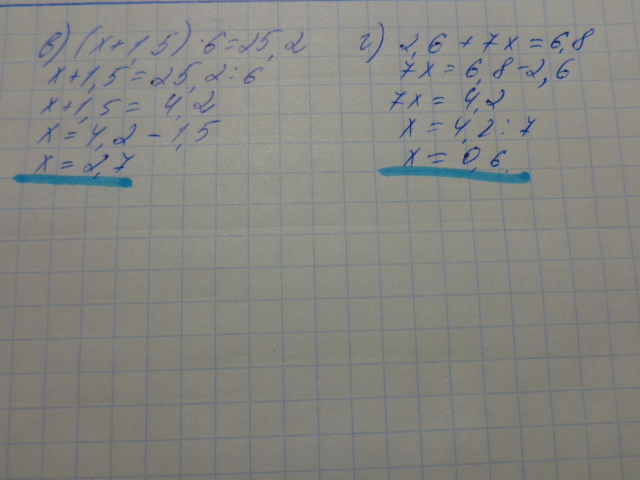 в) (x+1,5)·6=25,2
x+1,5=25,2:6
x+1,5= 4,2
x=4,2-1,5
x=2,7
г) 2,6+7x=6,8
7x=6,8-2,6
7x=4,2
x=4,2:7
x=0,6.